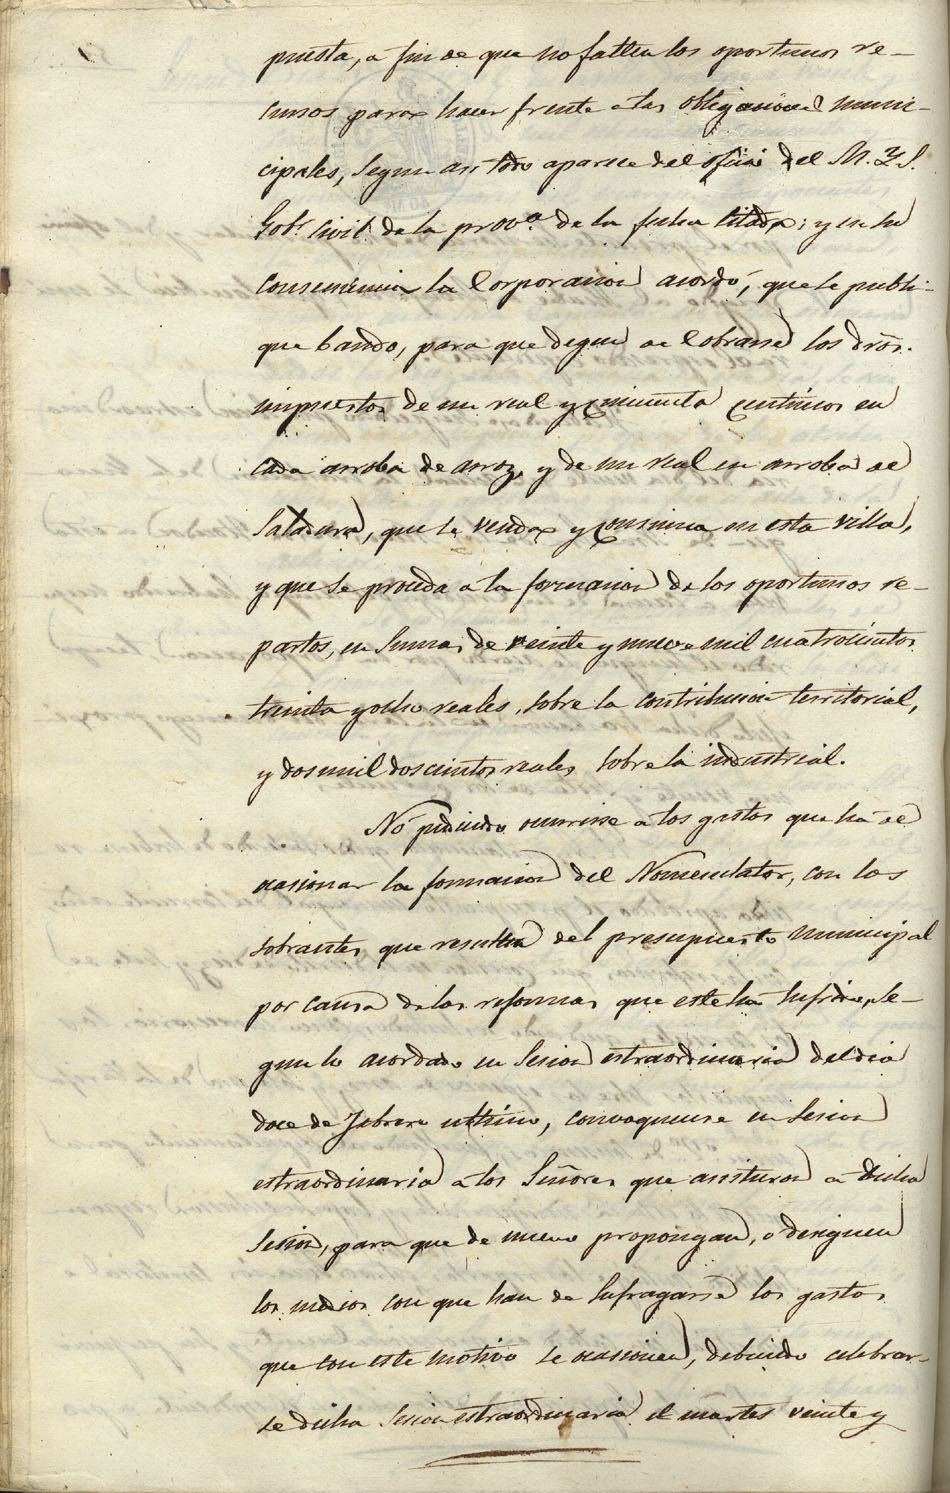 puesta, a fin de que no falten los oportunos re-
cursos para hacer frente a las obligaciones muni-
cipales, segun asi todo aparece del oficio del M. Y. S.
Gobr. Civil de la prova. de la fecha citada; y en su
consecuencia la Corporacion acordó, que se publi-
que bando, para que deguen de cobrarse los dros.
impuestos de un real y cincuenta centimos en
cada arroba de arroz, y de un real en arroba de
Saladura, que se venda y consuma en esta villa,
y que se proceda a la formacion de los oportunos re-
partos, en suma de veinte y nueve mil cuatrocientos
treinta y ocho reales, sobre la contribucion territorial,
y dos mil doscientos reales sobre la industrial.
No pudiendo ocurrirse a los gastos que ha de
ocasionar la formacion del Nomenclator, con los
sobrantes que resultan del presupuesto municipal
por causa de las reformas que este ha sufrido, se-
gun lo acordado en Sesion estraordinaria del dia
doce de Febrero ultimo, convoquense en Sesion
estraordinaria a los Señores que asistieron a dicha
Sesion, para que de nuevo propongan, o designen
los medios con que han de sufragarse los gastos
que con este motivo se ocasionen, debiendo celebrar-
se dicha Sesion estraordinaria el martes veinte y